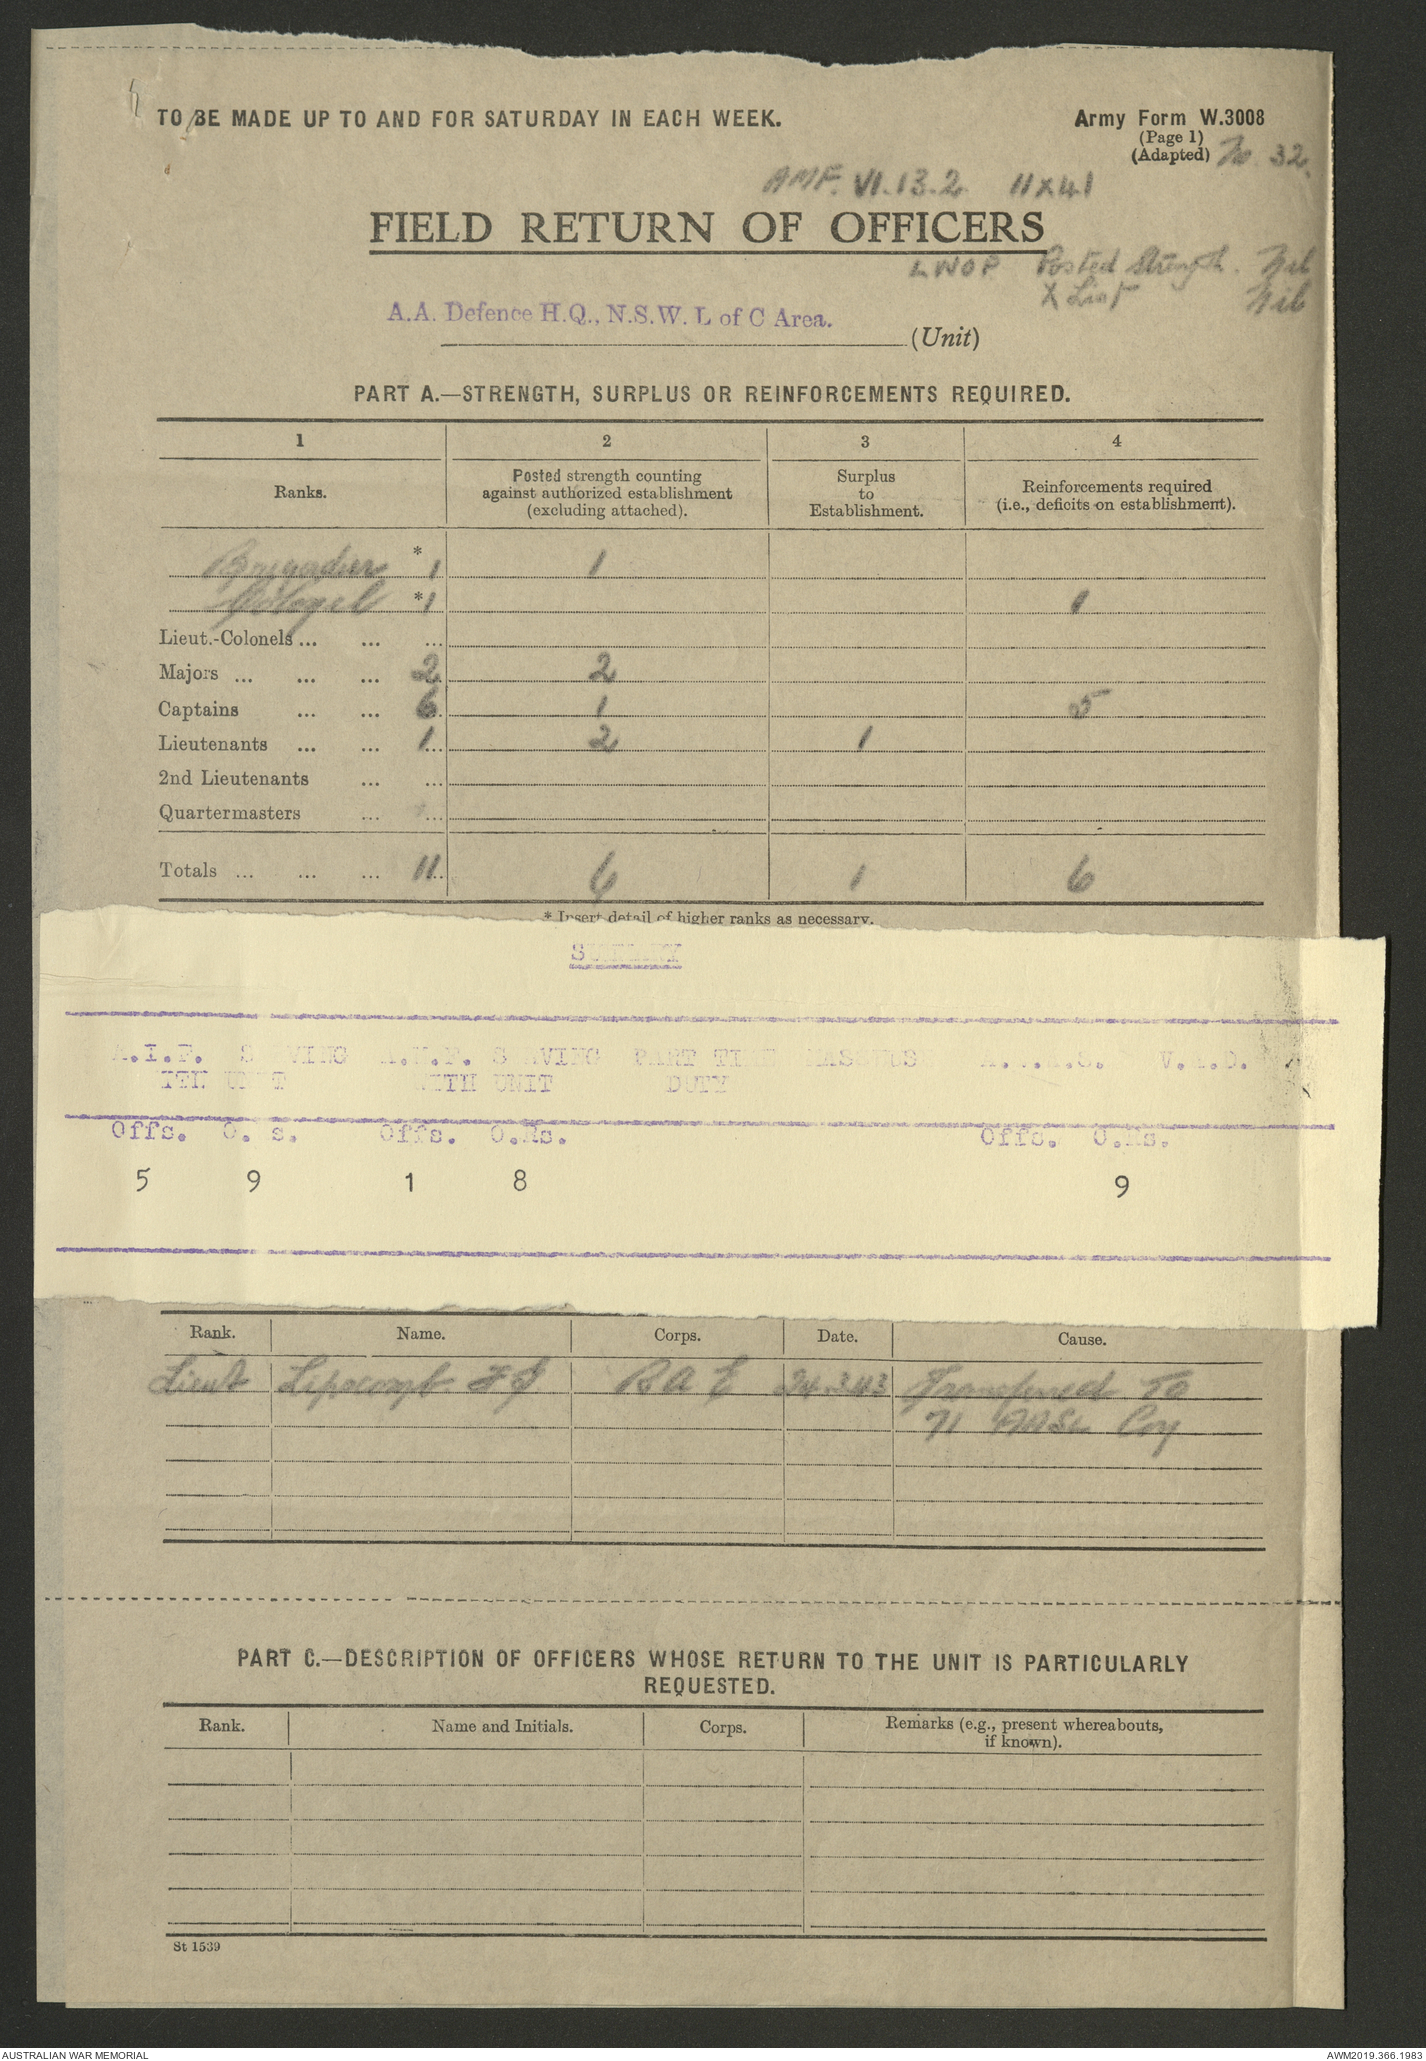 TO BE MADE UP TO AND FOR SATURDAY IN EACH WEEK.
Army Form W.3008
(Page 1)
(Adapted) No 32.
AMF. VI.13.2 11X41
FIELD RETURN OF OFFICERS
LWOP Posted Strength. Nil
X List Nil
A.A. Defence H.Q., N.S.W. L of C Area.
(Unit)
PART A.—STRENGTH, SURPLUS OR REINFORCEMENTS REQUIRED.
1 2 3 4
Ranks.
Posted strength counting
against authorized establishment
(excluding attached).
Surplus
to
Establishment.
Reinforcements required
(i.e., deficits on establishment).
Brigadier * 1 1
Colonel * 1 1
Lieut.-Colonels ... ... ...
Majors ... ... ... 2 2
Captains ... ... 6 1 5
Lieutenants ... ... 1 2 1
2nd Lieutenants ... ...
Quartermasters ... ...
Totals ... ... ... 11 6 1 6
* Insert detail of higher ranks as necessary.
SUMMARY
A.I.F. S VING A.M.F. S VING PART TIME V.A.D.
WITH UNIT DUTY
Offs. O. s. Offs. O.Rs. Offs. O.Rs.
5 9 1 8 9
Rank. Name. Corps. Date. Cause.
Lieut RAE 24.3.43 Transferred To
71 AASL Coy
PART C.—DESCRIPTION OF OFFICERS WHOSE RETURN TO THE UNIT IS PARTICULARLY
REQUESTED.
Rank. Name and Initials. Corps. Remarks (e.g., present whereabouts,
if known).
St 1539
AUSTRALIAN WAR MEMORIAL AWM2019.366.1983